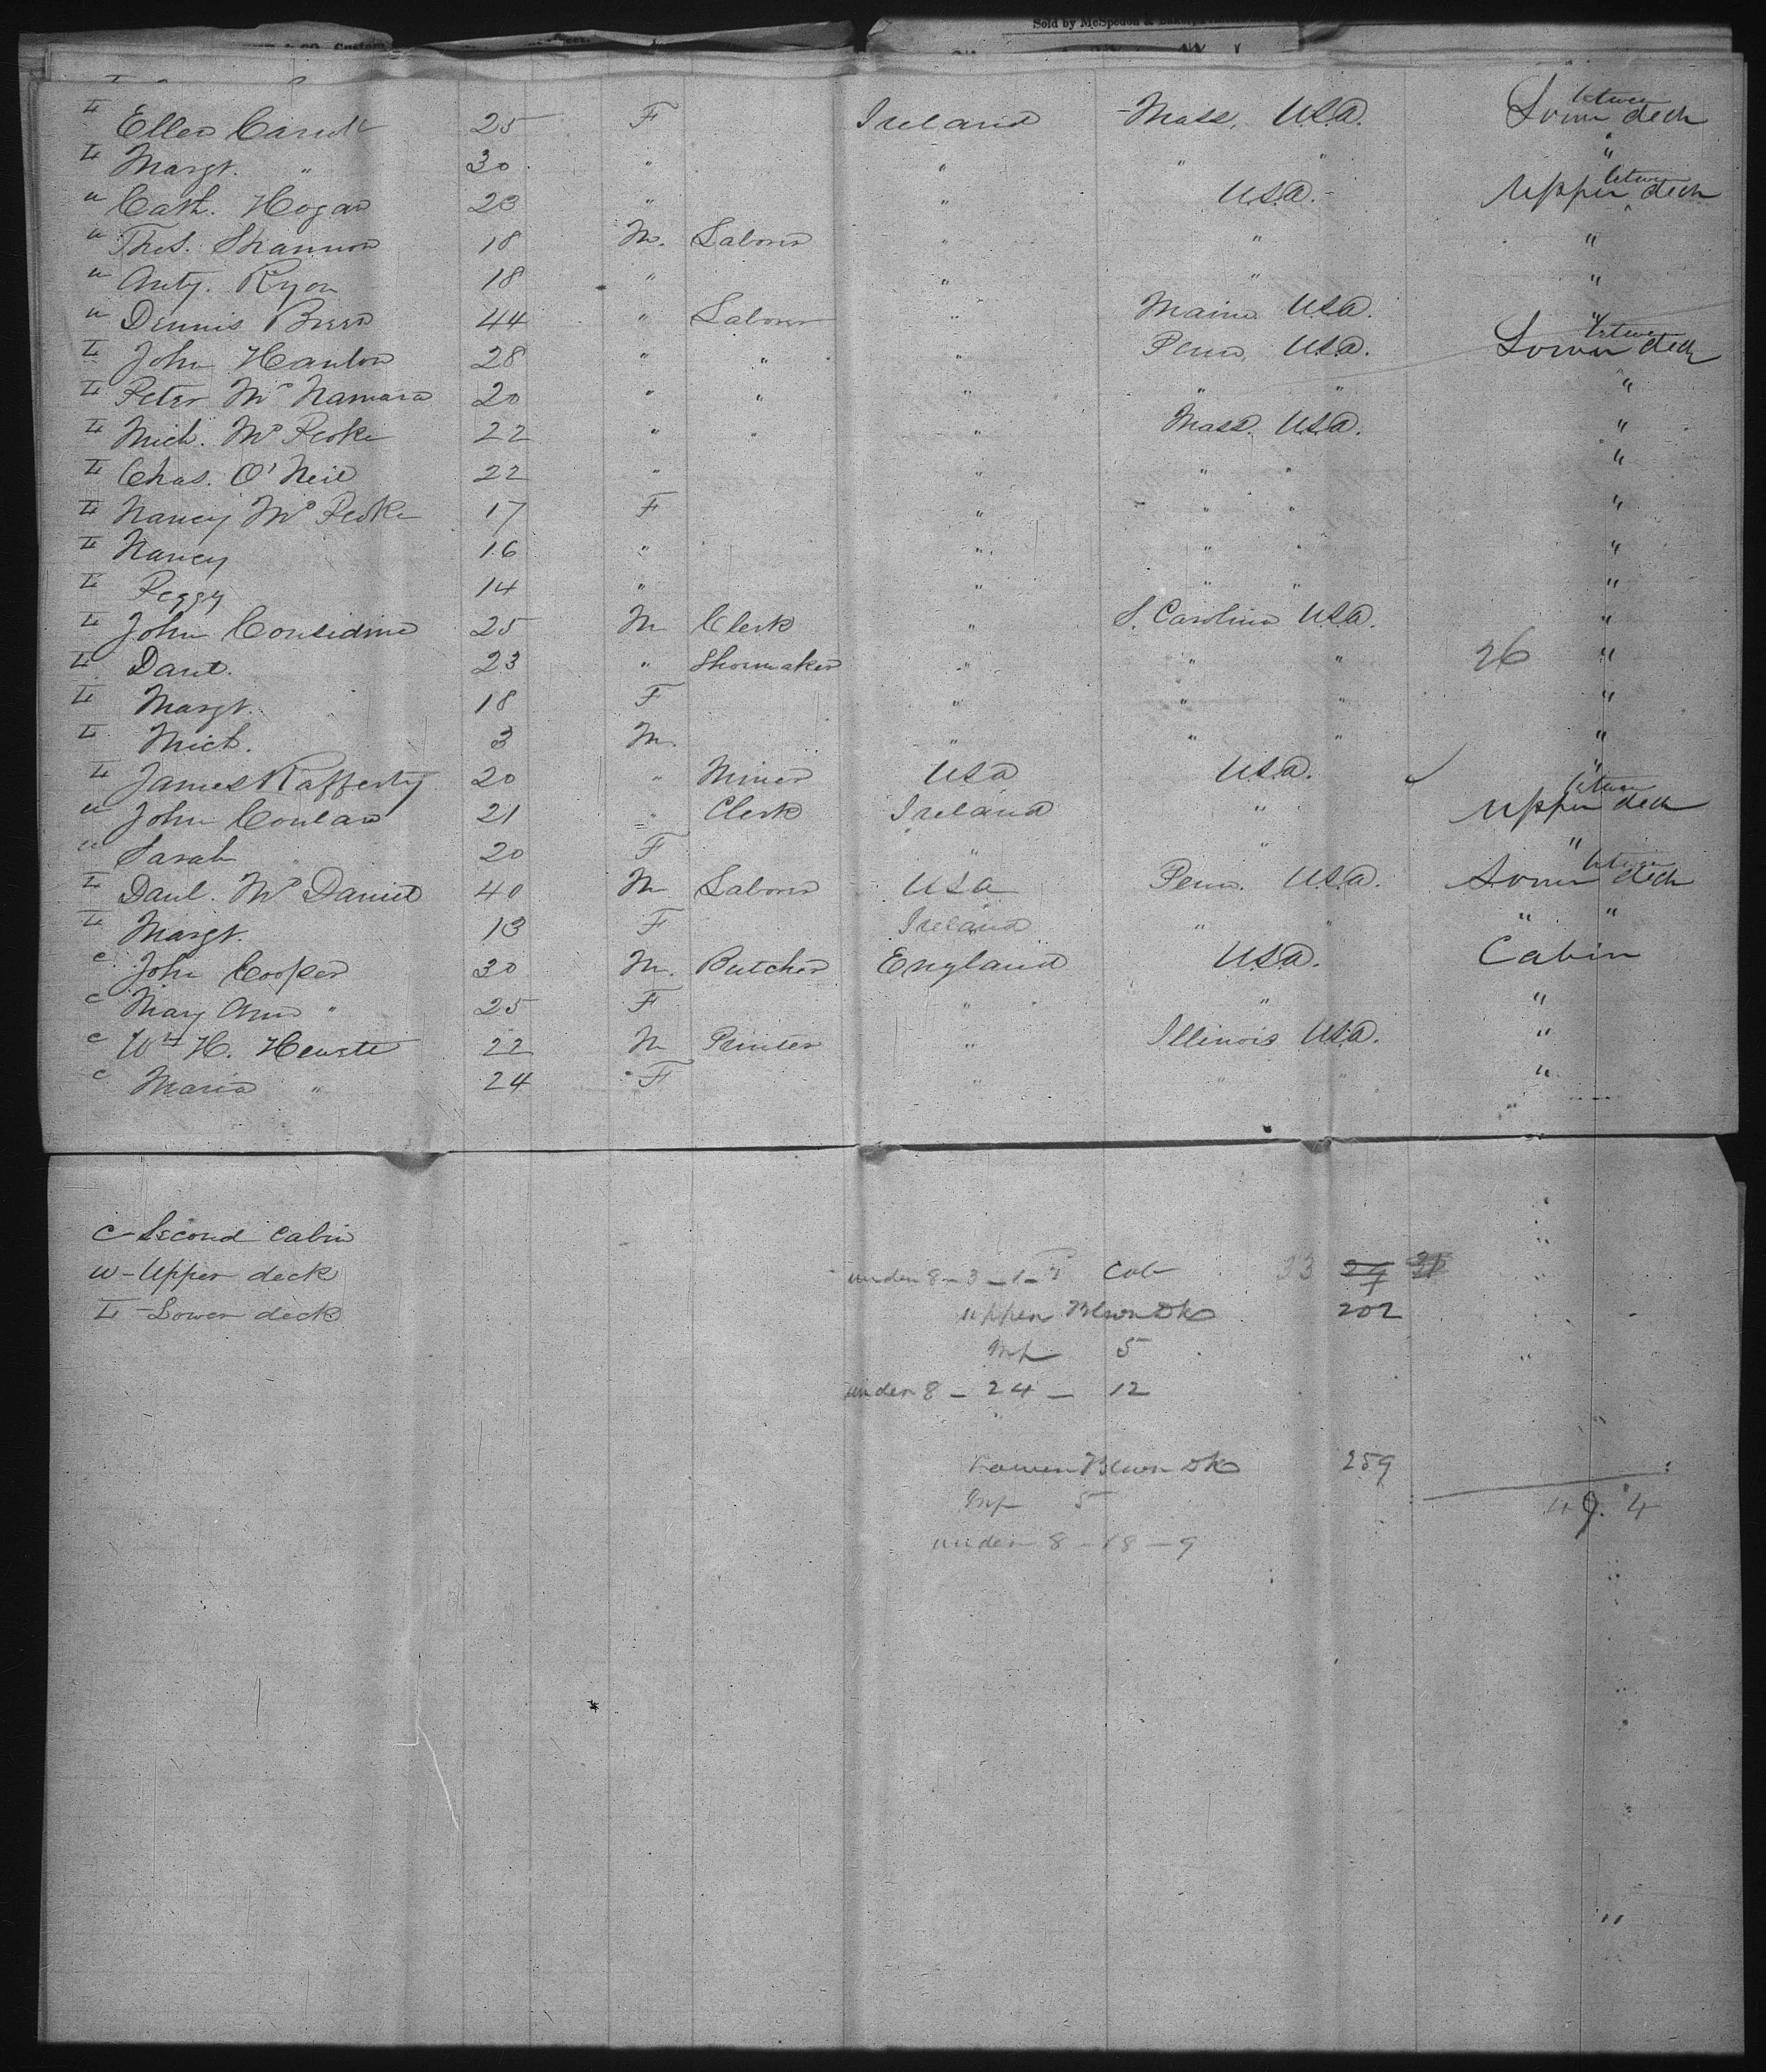 Sold by McSpedon & Baker,
L Ellen 25 F Ireland Mass. U.S.A. Lower between deck
L Margt. " 30 " " " " "
u Cath. Hogan 23 " " U.S.A. Upper between deck
u Thos. Shannon 18 M. Laborer " " "
u Anty. Ryan 18 " " " "
u Dennis 44 " Laborer " Maine U.S.A. "
L John Hanlon 28 " " " Penn. U.S.A. Lower between deck
L Peter McNamara 20 " " " " " "
L Mich. 22 " " " Mass. U.S.A. "
L Chas. O'Neil 22 " " " " "
L Nancy 17 F " " " "
L Nancy 16 " " " " "
L Peggy 14 " " " " "
L John Considine 25 M Clerk " S. Carolina U.S.A. "
L Danl. 23 " Shoemaker " " " 26 "
L Margt. 18 F " " " "
L Mich. 3 M. " " " "
L James Rafferty 20 " Miner USA U.S.A. "
u John Conlan 21 " Clerk Ireland " Upper between deck
u Sarah " 20 F " " "
L Danl. McDaniel 40 M Laborer USA Penn. U.S.A. Lower between deck
L Margt. 13 F Ireland " " " "
c John Cooper 30 M. Butcher England U.S.A. Cabin
c Mary Ann " 25 F " " "
c Wm H. 22 M Printer " Illinois U.S.A. "
c Maria " 24 F " " " "
c - Second Cabin
u - Upper deck
L - Lower deck
under 8 - 3 - 1 - Cab 33 27
upper Btwn Dk 202
Inf 5
under 8 - 24 - 12
Lower Btwn Dk 259
Inf 5
494
under 8 - 18 - 9